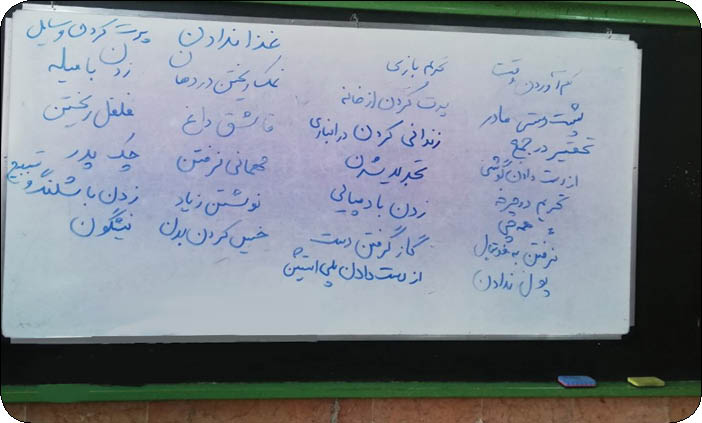 کم آوردن وقت
پشت دستی مادر
تحقیر در جمع
از دست دادن گوشی
تحریم دوچرخه
همه چی
نرفتن به فوتبال
پول ندادن
تحریم بازی
پرت کردن از خانه
زندانی کردن در انباری
تجدید شدن
زدن با دمپایی
گاز گرفتن دست
از دست دادن پلی استیشن
غذا ندادن
نمک ریختن در دهان
قاشق داغ
مهمانی نرفتن
نوشتن زیاد
خیس کردن بدن
پرت کردن وسایل
زدن با میله
فلفل ریختن
چک پدر
زدن با شلنگ و تسبیح
نیشگون